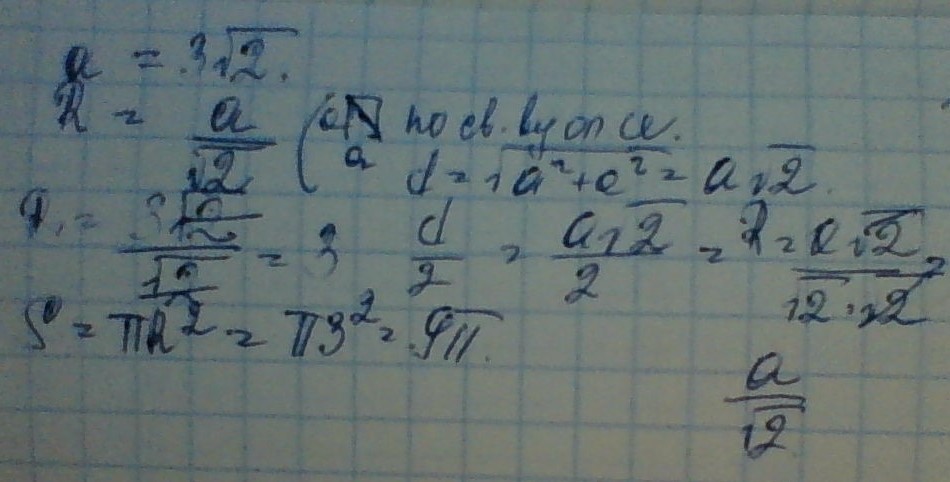 a = 3√2.
R = a/√2 (a a по св. d = √a²+a² = a√2.
R = 3√2/√2 = 3 d/2 = a√2/2 = R = a√2/√2·√2 =
S = πR² = π3² = 9π.
a/√2